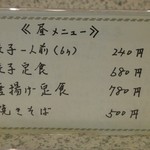 ≪昼メニュー≫
子一人前(6ヶ) 240円
子定食 680円
揚げ定食 780円
焼きそば 500円